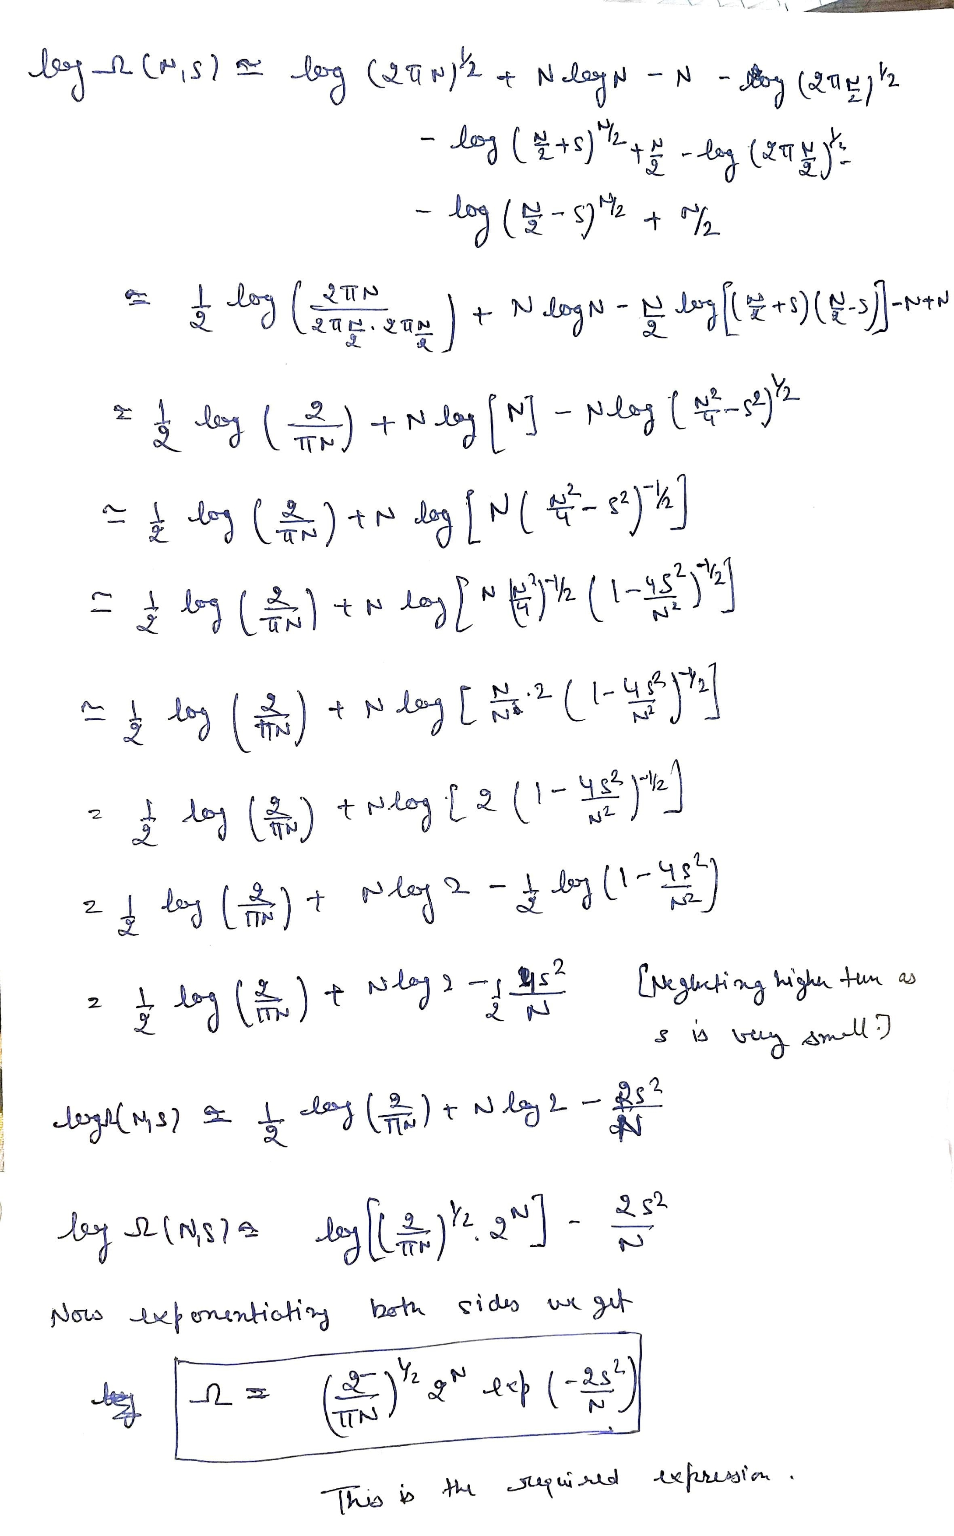 log Ω (N,s) ≃ log (2πN)^1/2 + N log N - N - log (2π N/2)^1/2
- log (N/2 + s)^N/2 + N/2 - log (2π N/2)^1/2
- log (N/2 - s)^N/2 + N/2
≃ 1/2 log (2πN / 2πN/2 · 2πN/2) + N log N - N/2 log[(N/2 + s)(N/2 - s)] - N + N
≃ 1/2 log (2/πN) + N log [N] - N log (N²/4 - s²)^1/2
≃ 1/2 log (2/πN) + N log [N (N²/4 - s²)^-1/2]
≃ 1/2 log (2/πN) + N log [N (N²/4)^-1/2 (1 - 4s²/N²)^-1/2]
≃ 1/2 log (2/πN) + N log [N/N · 2 (1 - 4s²/N²)^-1/2]
= 1/2 log (2/πN) + N log [2 (1 - 4s²/N²)^-1/2]
= 1/2 log (2/πN) + N log 2 - 1/2 log (1 - 4s²/N²)
= 1/2 log (2/πN) + N log 2 - 1/2 4s²/N [Neglecting higher term as
s is very small]
log Ω(N,s) ≃ 1/2 log (2/πN) + N log 2 - 2s²/N
log Ω(N,s) ≃ log[(2/πN)^1/2 . 2^N] - 2s²/N
Now exponentiating both sides we get
Ω = (2/πN)^1/2 2^N exp (-2s²/N)
This is the required expression.